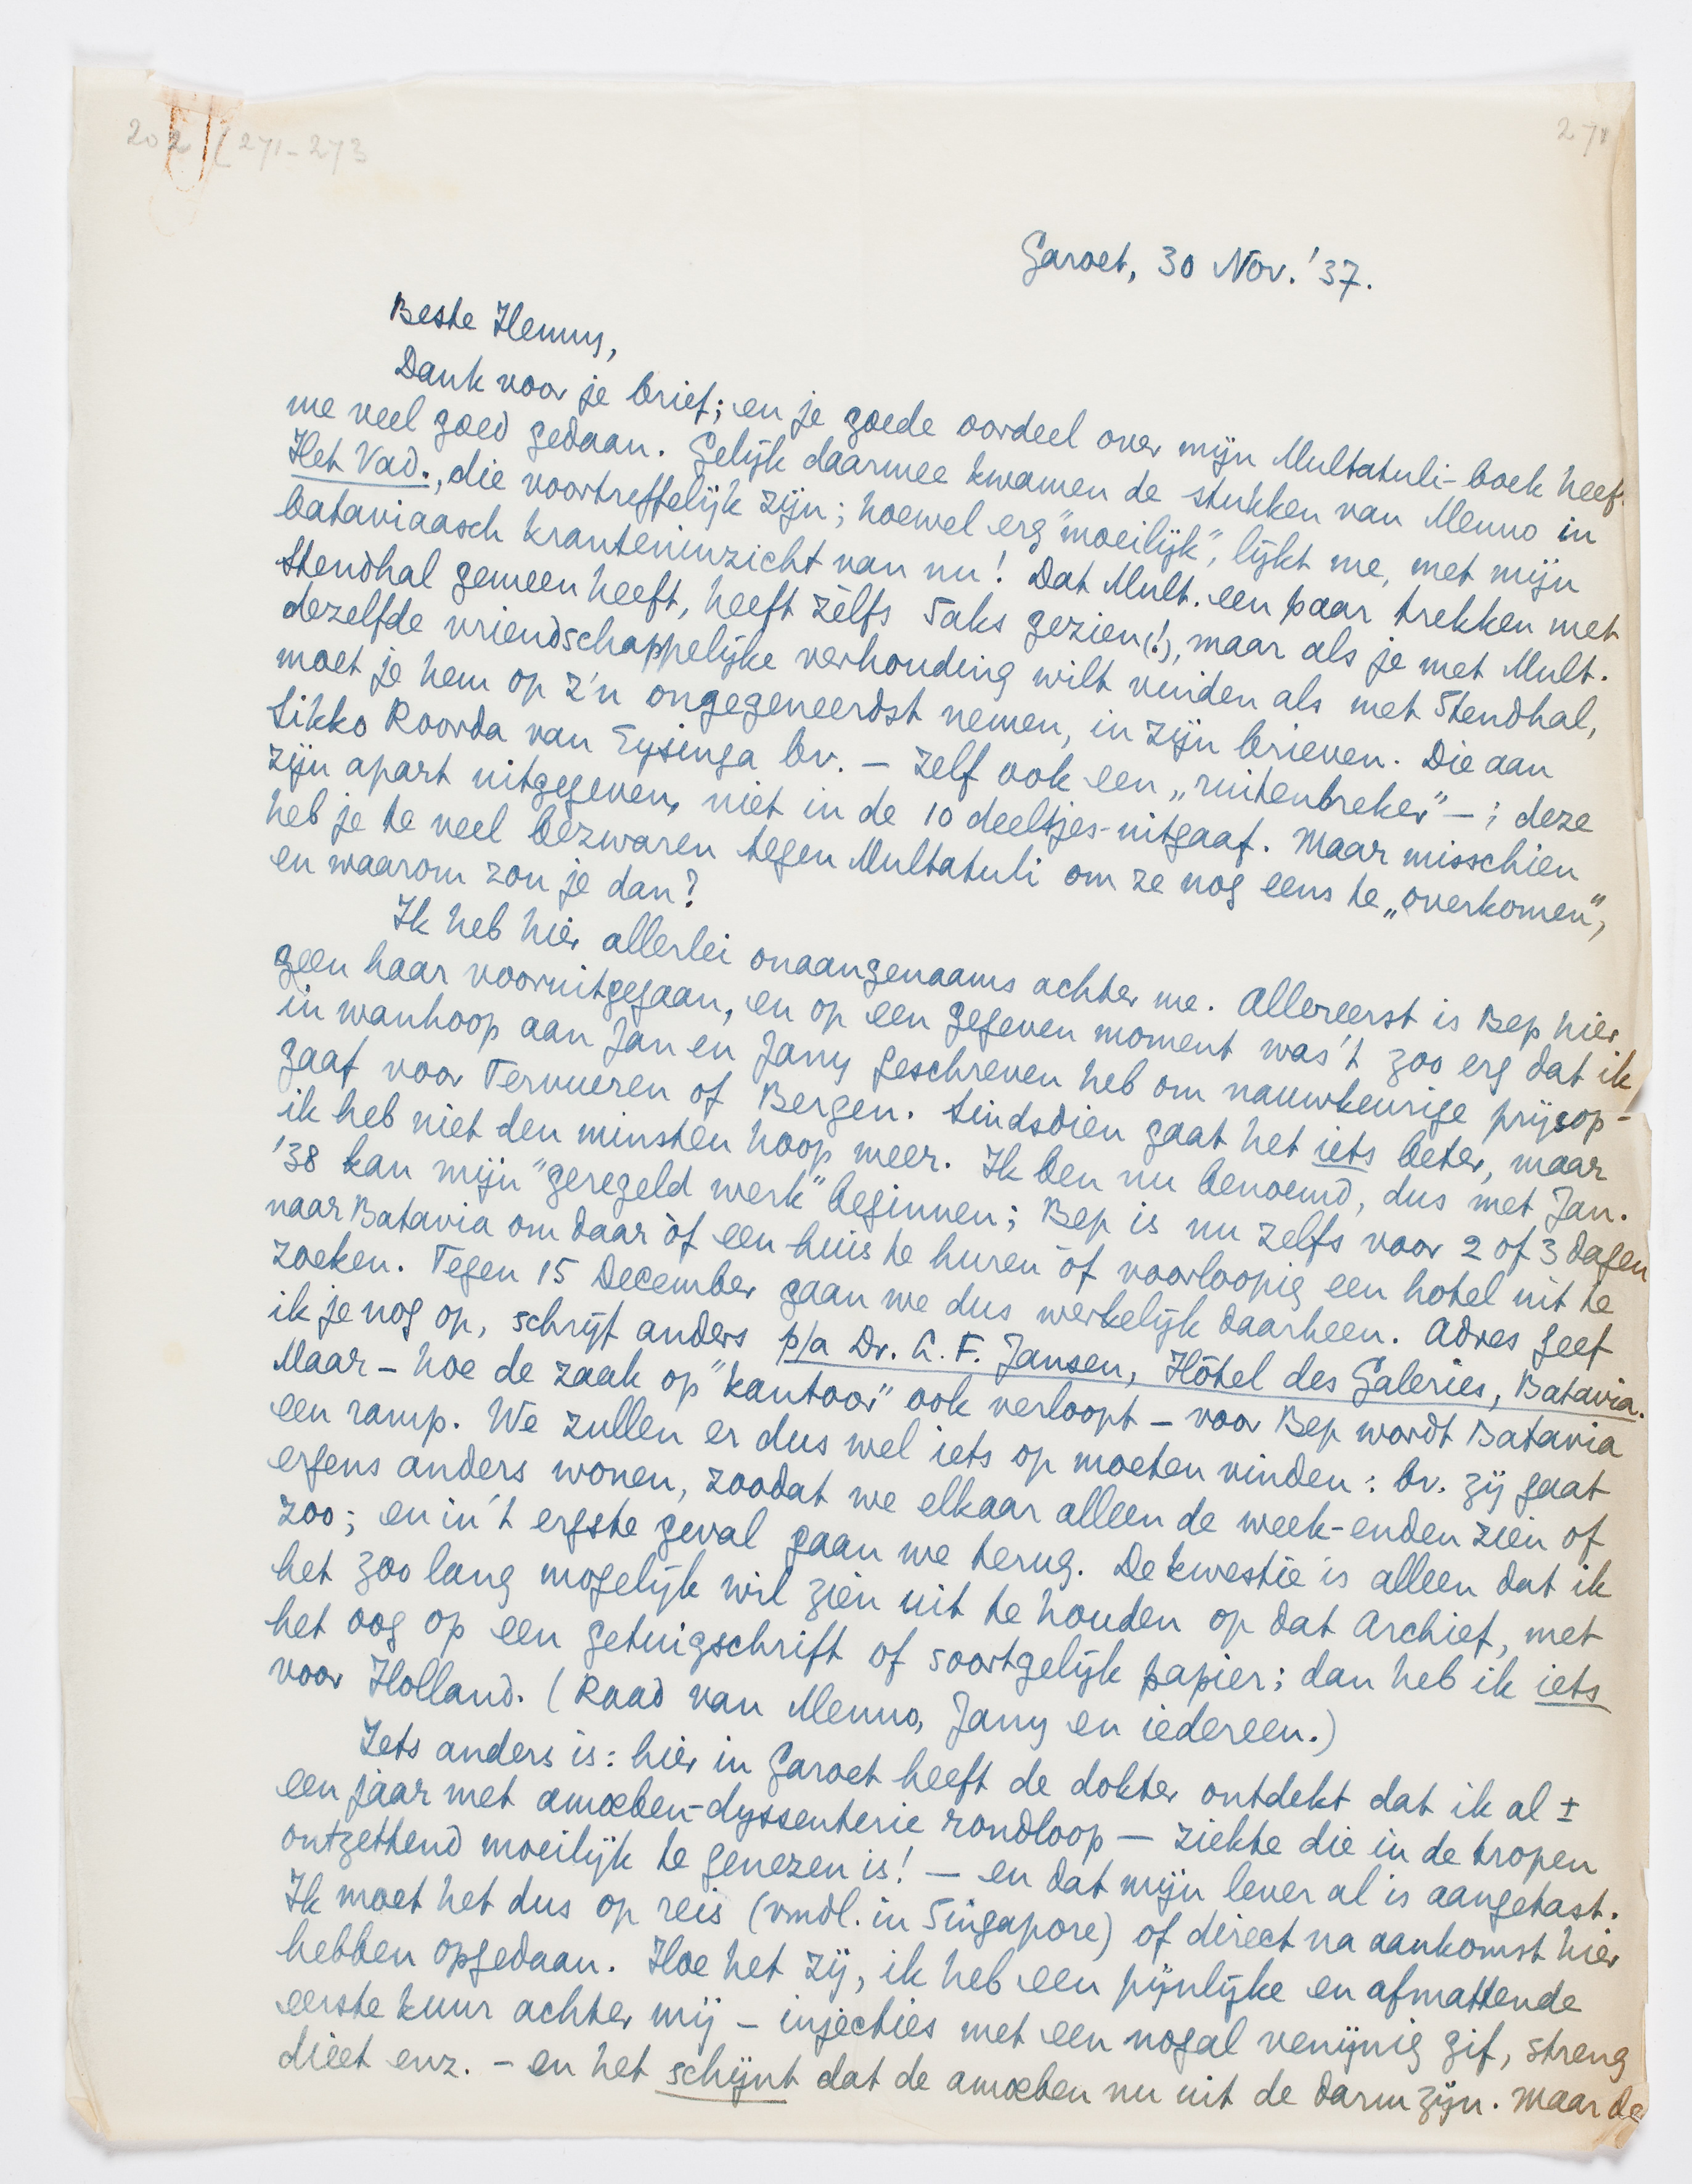 202 (271-273
271
Garoet, 30 Nov. '37.
Beste Henny,
Dank voor je brief; en je goede oordeel over mijn Multatuli-boek heeft
me veel goed gedaan. Gelijk daarmee kwamen de stukken van Menno in
Het Vad., die voortreffelijk zijn; hoewel erg "moeilijk", lijkt me, met mijn
bataviaasch kranteninzicht van nu! Dat Mult. een paar trekken met
Stendhal gemeen heeft, heeft zèlfs Saks gezien(!), maar als je met Mult.
dezelfde vriendschappelijke verhouding wilt vinden als met Stendhal,
moet je hem op z'n ongegeneerdst nemen, in zijn brieven. Die aan
Sikko Roorda van Eysinga bv. — zelf ook een „ruitenbreker" —; deze
zijn apart uitgegeven, niet in de 10 deeltjes-uitgaaf. Maar misschien
heb je te veel bezwaren tegen Multatuli om ze nog eens te „overkomen",
en waarom zou je dan?
Ik heb hier allerlei onaangenaams achter me. Allereerst is Bep hier
geen haar vooruitgegaan, en op een gegeven moment was 't zoo erg dat ik
in wanhoop aan Jan en Jany geschreven heb om nauwkeurige prijsop-
gaaf voor Tervueren of Bergen. Sindsdien gaat het iets beter, maar
ik heb niet den minsten hoop meer. Ik ben nu benoemd, dus met Jan.
'38 kan mijn "geregeld werk" beginnen; Bep is nu zelfs voor 2 of 3 dagen
naar Batavia om daar òf een huis te huren òf voorloopig een hotel uit te
zoeken. Tegen 15 December gaan we dus werkelijk daarheen. Adres geef
ik je nog op, schrijf anders p/a Dr. G. F. Jansen, Hôtel des Galeries, Batavia.
Maar – hoe de zaak op "kantoor" ook verloopt – voor Bep wordt Batavia
een ramp. We zullen er dus wel iets op moeten vinden: bv. zij gaat
ergens anders wonen, zoodat we elkaar alleen de week-enden zien of
zoo; en in 't ergste geval gaan we terug. De kwestie is alleen dat ik
het zoo lang mogelijk wil zien uit te houden op dat Archief, met
het oog op een getuigschrift of soortgelijk papier; dan heb ik iets
voor Holland. (Raad van Menno, Jany en iedereen.)
Iets anders is: hier in Garoet heeft de dokter ontdekt dat ik al ±
een jaar met amœben-dyssenterie rondloop — ziekte die in de tropen
ontzettend moeilijk te genezen is! — en dat mijn lever al is aangetast.
Ik moet het dus op reis (vmdl. in Singapore) of direct na aankomst hier
hebben opgedaan. Hoe het zij, ik heb een pijnlijke en afmattende
eerste kuur achter mij – injecties met een nogal venijnig gif, streng
diëet enz. – en het schijnt dat de amœben nu uit de darm zijn. Maar de